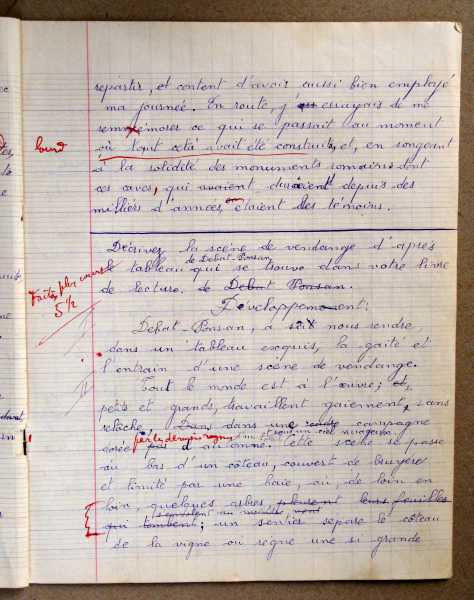 repartir, et content d'avoir aussi bien employé
ma journée. En route, j'essayais de me
remémorer ce qui se passait au moment
lourd
où tout cela avait été construit, et, en songeant
à la solidité des monuments romains dont
ces caves, qui duraient depuis des
milliers d'années, en étaient les témoins.
Décrivez la scène de vendange d'après
le tableau de Debat-Ponsan qui se trouve dans votre livre
de lecture, de Debat Ponsan.
Faites plus court
5 1/2
Développement:
Debat-Ponsan, a su nous rendre
dans un tableau exquis, la gaité et
l'entrain d'une scène de vendange.
Tout le monde est à l'œuvre;
petits et grands, travaillent gaiement, sans
relâche dans une campagne
dorée par les derniers rayons d'automne. Cette scène se passe
au bas d'un côteau, couvert de bruyère
et limité par une haie, où, de loin en
loin, quelques arbres, pleurent leurs feuilles
semblent
qui tombent; un sentier sépare le côteau
de la vigne où règne une si grande